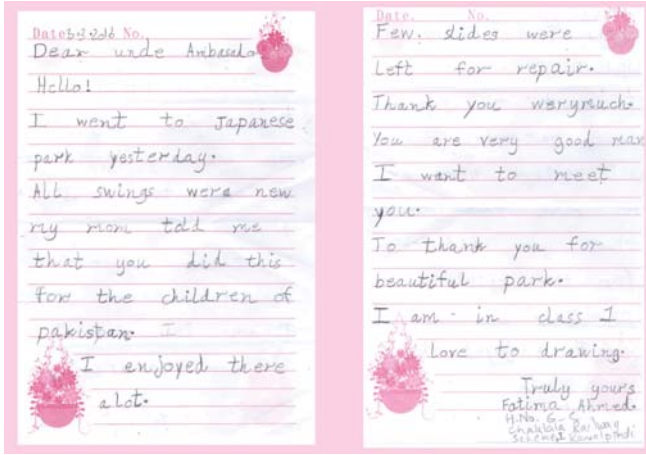 Date 3-3-2016 No.
Dear unde Ambasado
Hello!
I went to Japanese
park yesterday.
All swings were new
my mom told me
that you did this
for the children of
pakistan. I
I enjoyed there
alot.
Date. No.
Few. slides were
left for repair.
Thank you werymuch.
You are very good man
I want to meet
you.
To thank you for
beautiful park.
I am in class 1
Love to drawing.
Truly yours
Fatima Ahmed.
H.No. G-5
Chaklala Railway
Scheme 1 Rawalpindi